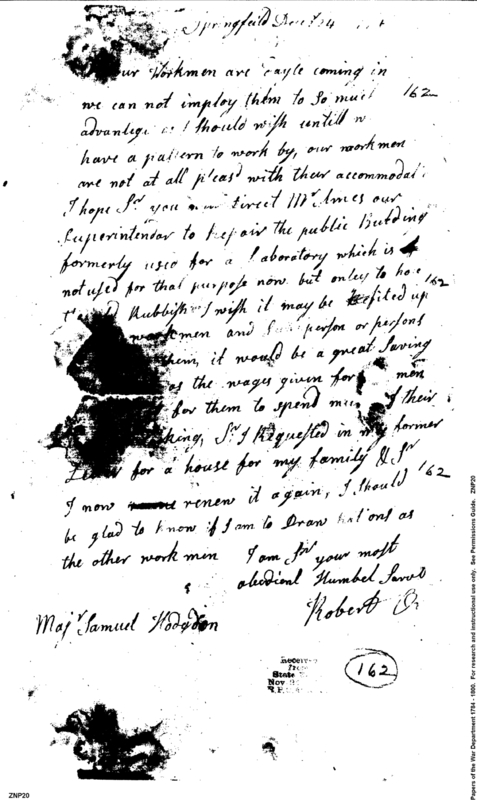 Springfield Decr 24
our Workmen are Dayle coming in
we can not imploy them to So much 162
advantege as I Should wish untill w
have a pattern to work by, our workmen
are not at all pleasd with their accommodat
I hope Sr you direct Mr Ames our
Superintendar to Repair the public Building
formerly used for a Laboratory which is
not used for that purpose now but onley to ho 162
Rubbish I wish it may be fited up
workmen and Some person or persons
them, it would be a great Saving
as the wages given for men
for them to spend of their
king, Sr I Requested in my former
Letter for a house for my family & Sr
I now renew it again, I Should 162
be glad to know if I am to Draw Rations as
the other work men I am Sr your most
obedient Humbel Sarvt
Robert Or
Majr Samuel Hodgdon
Receive
from
State
Nov
R.P.
162
ZNP20
Papers of the War Department 1784 - 1800. For research and instructional use only. See Permissions Guide. ZNP20